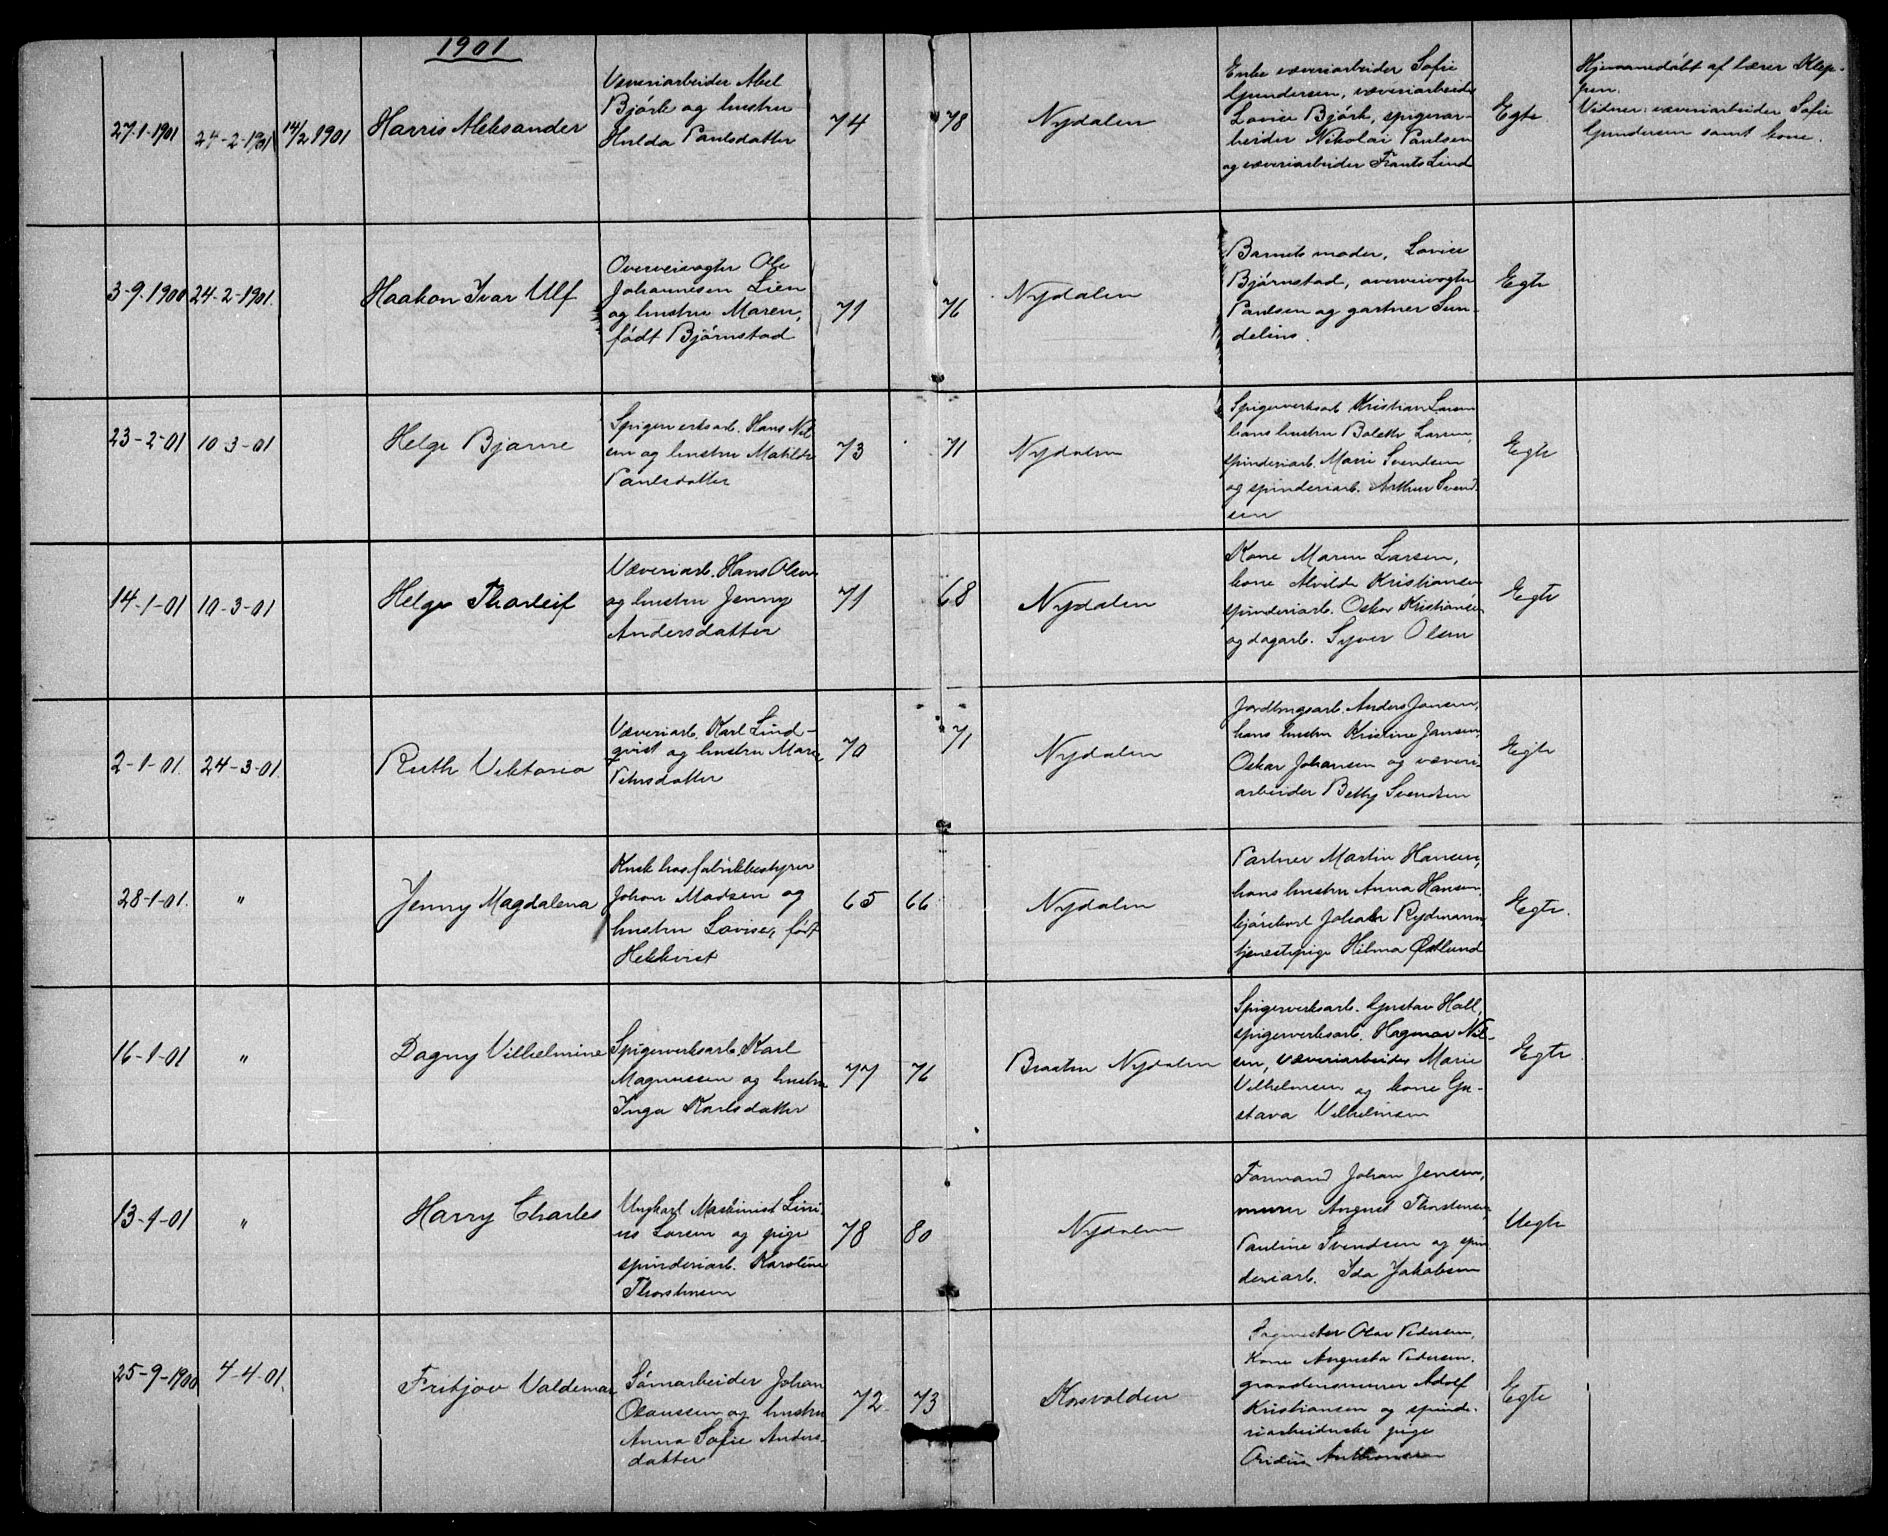 1901
27-1-1901
24-2-1901
14/2 1901
Harris Aleksander
Væveriarbeider Abel
Bjórk og hustru
Hulda Paulsdatter
74
78
Nydalen
Enke væveriarbeider Sofie
Gundersen, væveriarbeider
Lovise Bjórk, spigerar-
beider Nikolai Paulsen
og væveriarbeider Frants Lind
Egte
Hjemmedóbt af lærer Klep-
pen.
Vidner: væveriarbeider Sofie
Gundersen samt kone
3-9-1900
24-2-1901.
Haakon Ivar Ulf
Overveivogter Ole
Johannesen Lien
og hustru Maren,
født Bjórnstad
71
76
Nydalen
Barnets moder, Lovise
Bjórnstad, overveivogter
Paulsen og gartner Sun-
delius.
Egte
23-2-01
10-3-01
Helge Bjarne
Spigerverksarb. Hans Nil
sen og hustru Matilde
Paulsdatter
73
71
Nydalen
Spigerverksarb Kristian Larsen
hans hustru Bolette Larsen,
spinderiarb. Marie Svendsen
og spinderiarb. Arthur Svend
sen
Egte
14-1-01
10-3-01
Helge Thorleif
Væveriarb. Hans Olsen
og hustru Jenny
Andersdatter
71
68
Nydalen
Kone Maren Larsen,
kone Alvilde Kristiansen
spinderiarb. Oskar Kristiansen
og dagarb. Syver Olsen
Egte
2-1-01.
24-3-01.
Ruth Viktoria
Væveriarb. Karl Lind-
qvist og hustru Maren
Petersdatter
70
71
Nydalen
Jordbrugsarb. Anders Jansen,
hans hustru Kristine Jansen
Oskar Johansen og væveri-
arbeider Betty Svendsen
Egte
28-1-01.
"
Jenny Magdalena
fabrikbestyrer
Johan Madsen og
hustru Lovise, født
Hekkvist
65
66
Nydalen
Partner Martin Hansen,
hans hustru Anna Hansen
kjórekarl Johan Rydmann
tjenestepige Hilma Østlund
Egte.
16-1-01
"
Dagny Vilhelmine
Spigerverksarb. Karl
Magnussen og hustru
Inga Karlsdatter
77
76
Braaten Nydalen
Spigerverksarb. Gustav Hall,
spigerverksarb. Hagmar Nil-
sen, væveriarbeider Marie
Vilhelmsen og kone Gu-
stava Vilhelmsen
Egte
13-1-01
"
Harry Charles
Ungkarl Maskinist Lini
us Larsen og pige
spinderiarb. Karoline
Thorstensen
78
80
Nydalen
Formand Johan Jensen,
murer August Thorstensen,
Pauline Svendsen og spin
deriarb. Ida Jakobsen
Uegte
25-9-1900
4-4-01.
Fritjov Valdemar
Sómarbeider Johan
Olaussen og hustru
Anna Sofie Anders-
datter
72
73
Korsvolden
Sagmester Olav Pedersen,
Kone Augusta Pedersen.
graastensmurer Adolf
Kristiansen og spinde-
riarbeiderske pige
Anthonsen
Egte